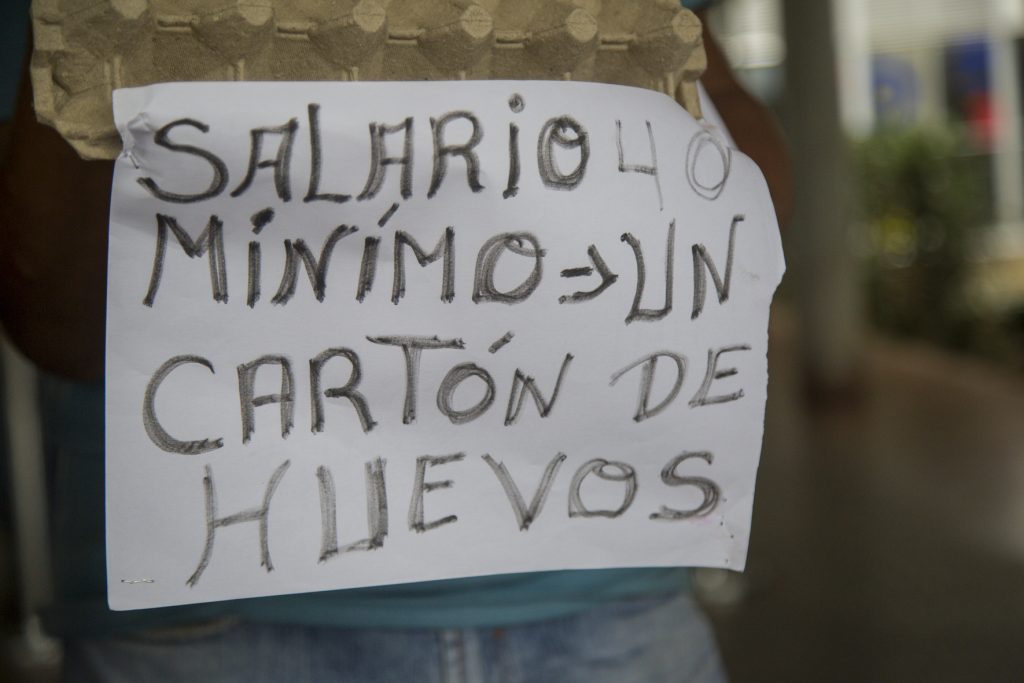 SALARIO 40
MÍNÍMO → UN
CARTÓN DE
HUEVOS